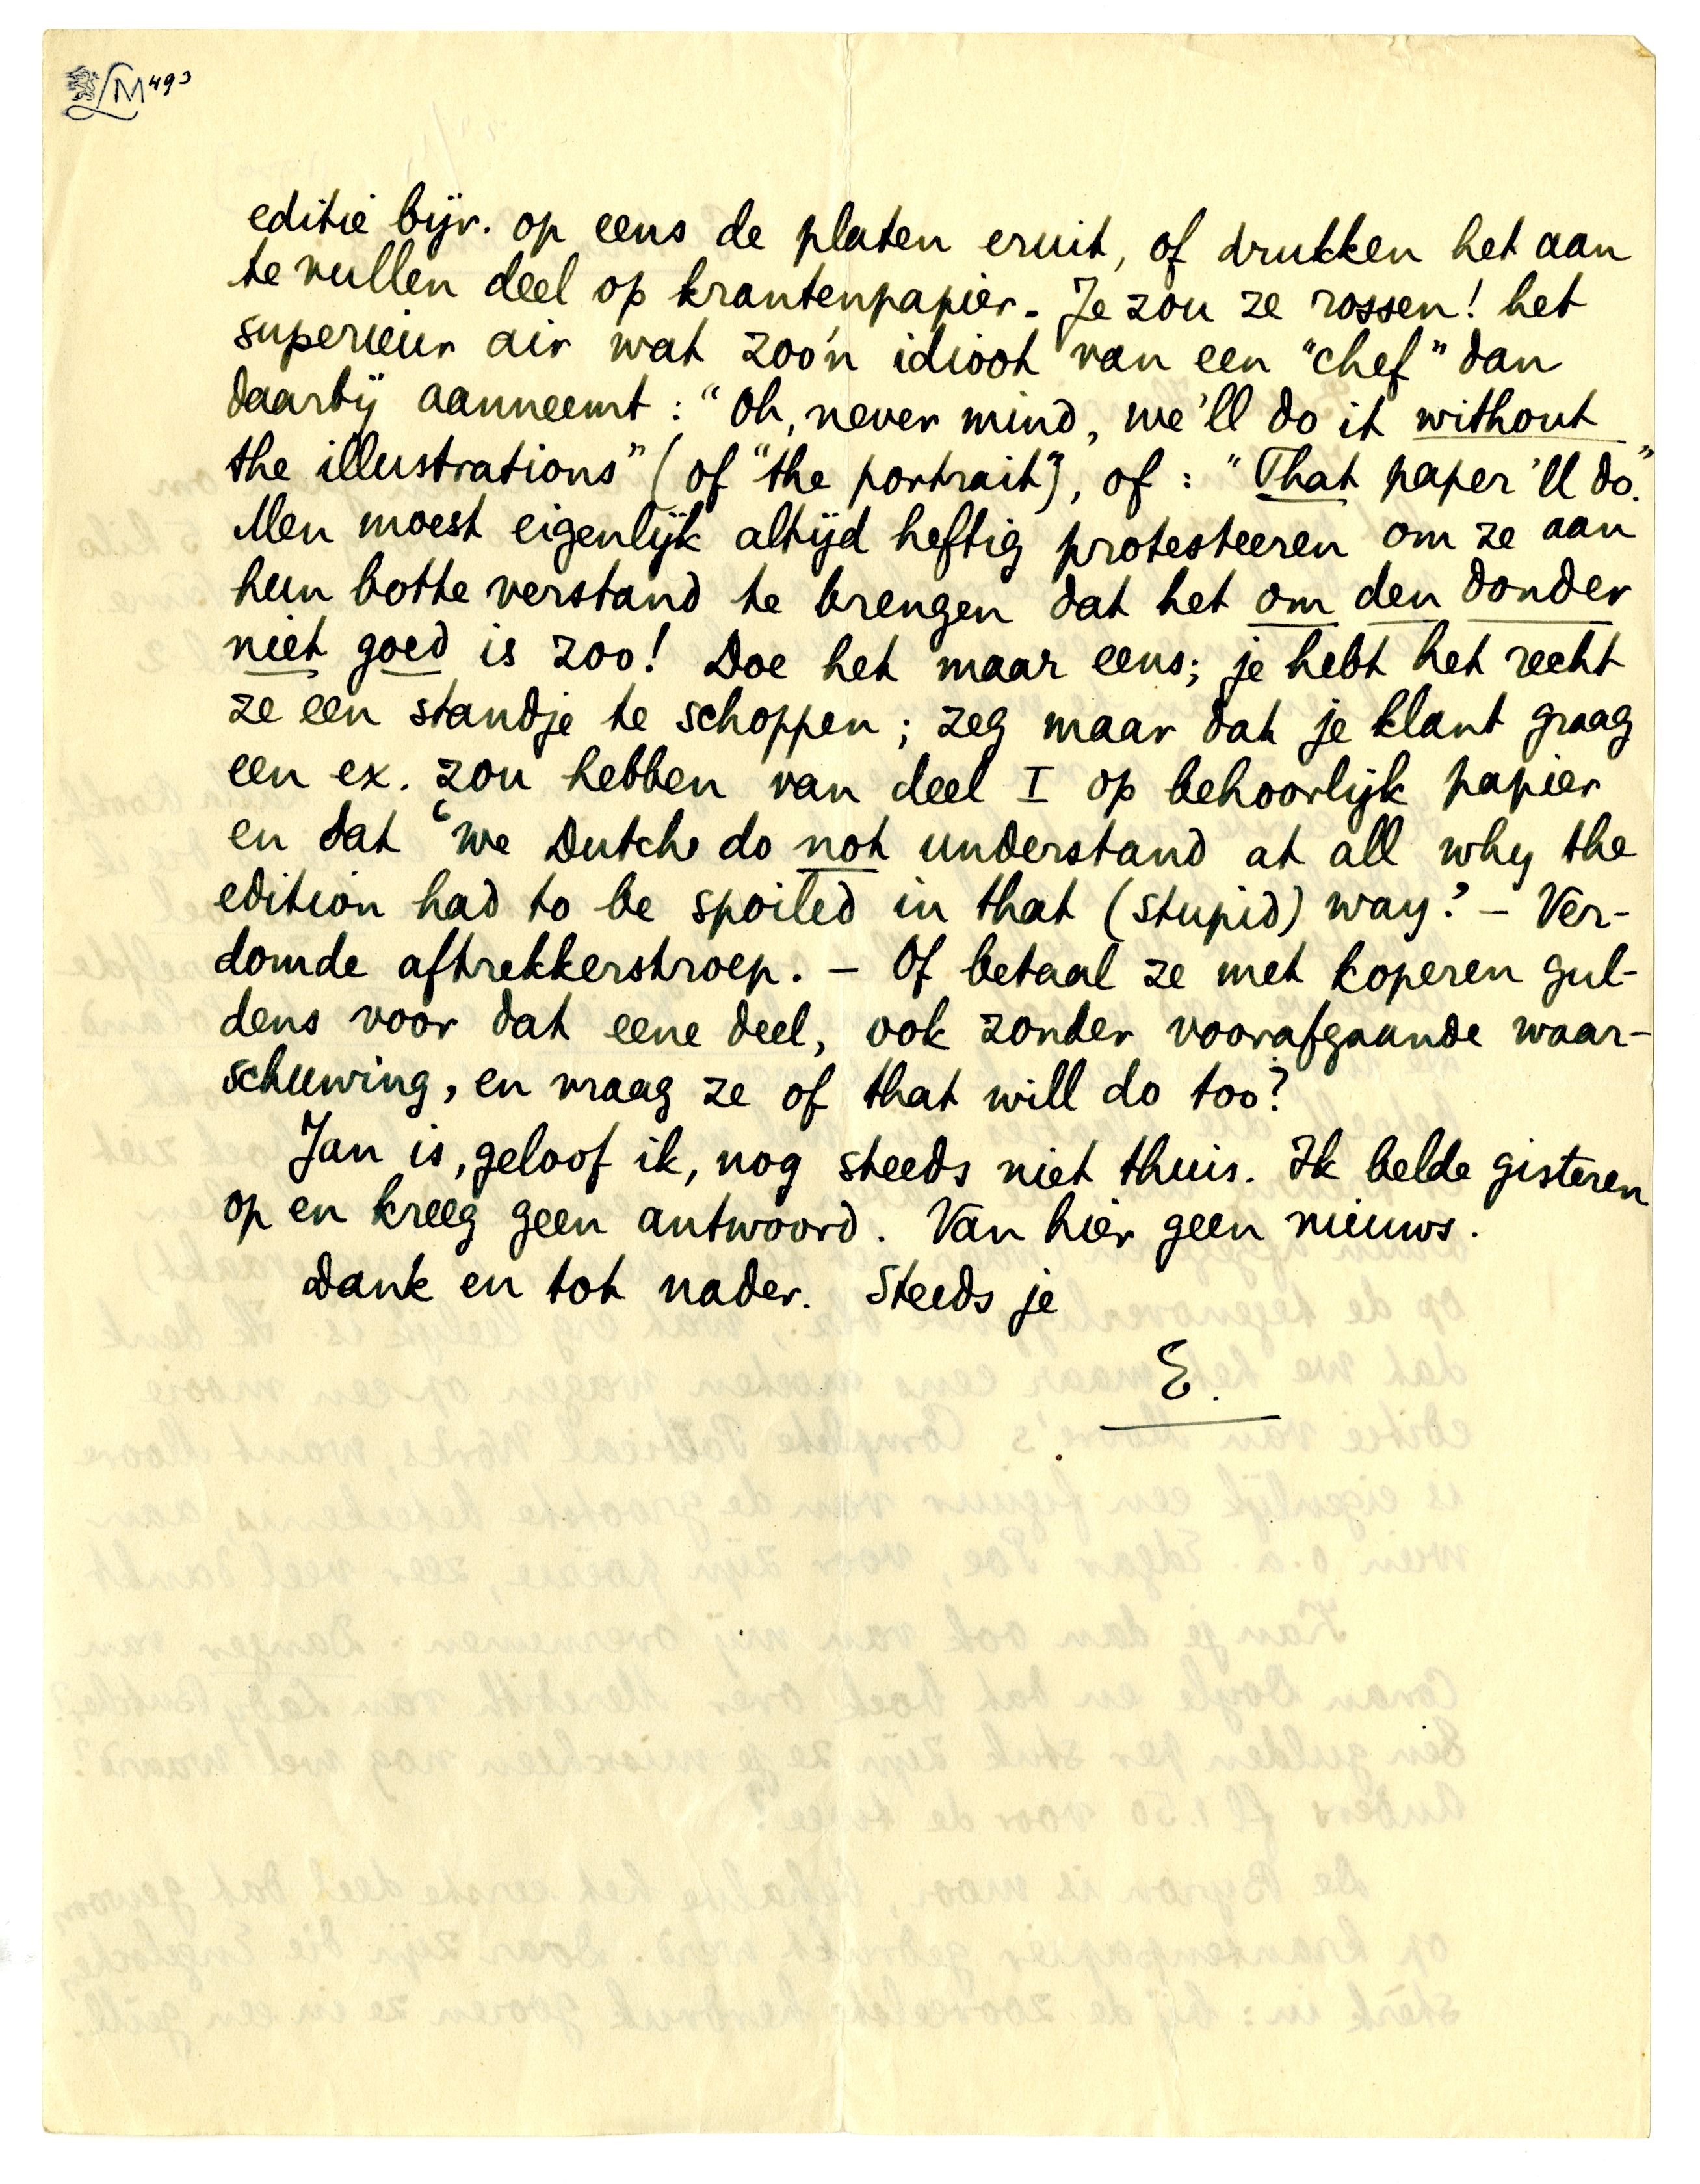 LM493
editie bijv. op eens de platen eruit, of drukken het aan
te vullen deel op krantenpapier. Je zou ze rossen! het
superieur air wat zoo'n idioot van een "chef" dan
daarbij aanneemt: "Oh, never mind, we'll do it without
the illustrations" (of "the portrait"), of: "That paper 'll do."
Men moest eigenlijk altijd heftig protesteeren om ze aan
hun botte verstand te brengen dat het om den donder
niet goed is zoo! Doe het maar eens; je hebt het recht
ze een standje te schoppen; zeg maar dat je klant graag
een ex. zou hebben van deel I op behoorlijk papier
en dat 'we Dutch do not understand at all why the
edition had to be spoiled in that (stupid) way.' – Ver-
domde aftrekkerstroep. – Of betaal ze met koperen gul-
dens voor dat eene deel, ook zonder voorafgaande waar-
schuwing, en vraag ze of that will do too?
Jan is, geloof ik, nog steeds niet thuis. Ik belde gisteren
op en kreeg geen antwoord. Van hier geen nieuws.
Dank en tot nader. Steeds je
E.